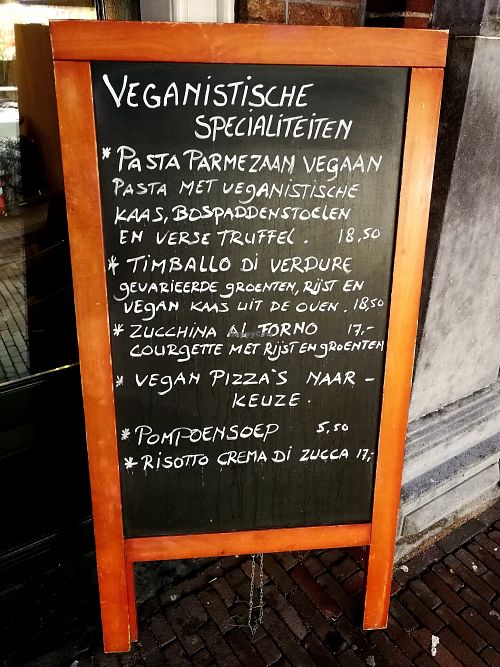 VEGANISTISCHE
SPECIALITEITEN
* PASTA PARMEZAAN VEGAAN
PASTA MET VEGANISTISCHE
KAAS, BOSPADDENSTOELEN
EN VERSE TRUFFEL. 18,50
* TIMBALLO DI VERDURE
GEVARIEERDE GROENTEN, RIJST EN
VEGAN KAAS UIT DE OVEN. 18,50
* ZUCCHINA AL FORNO 17,-
COURGETTE MET RIJST EN GROENTEN
* VEGAN PIZZA'S NAAR -
KEUZE.
* POMPOENSOEP 5,50
* RISOTTO CREMA DI ZUCCA 17,-